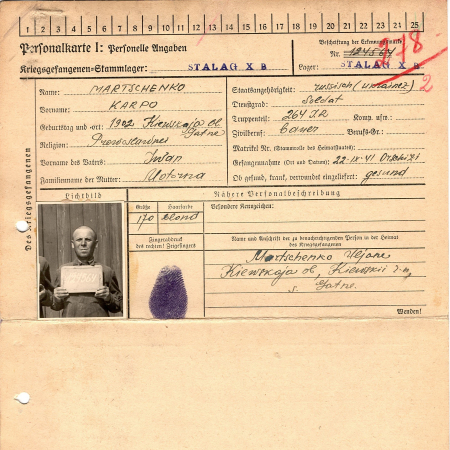 1 2 3 4 5 6 7 8 9 10 11 12 13 14 15 16 17 18 19 20 21 22 23 24 25
Personalkarte I: Personelle Angaben
Kriegsgefangenen-Stammlager: STALAG X B
Beschriftung der Erkennungsmarke
Nr. 124564
Lager: STALAG X B
2
Des Kriegsgefangenen
Name: MARTSCHENKO
Vorname: KARPO
Geburtstag und -ort: 1902 Kiewskaja Ob.
Gatne
Religion:
Vorname des Vaters: Iwan
Familienname der Mutter:
Staatsangehörigkeit: russisch (
Dienstgrad: Soldat
Truppenteil: 264 I.R. Komp. usw.:
Zivilberuf: Bauer Berufs-Gr.:
Matrikel Nr. (Stammrolle des Heimatstaates):
Gefangennahme (Ort und Datum): 22.IX.41
Ob gesund, krank, verwundet eingeliefert: gesund
Lichtbild
Nähere Personalbeschreibung
Größe Haarfarbe
170 blond
Besondere Kennzeichen:
Fingerabdruck
des rechten! Zeigefingers
Name und Anschrift der zu benachrichtigenden Person in der Heimat
des Kriegsgefangenen
Martschenko Uljana
Kiewskaja ob, Kiewskii r-n,
s. Gatne.
Wenden!